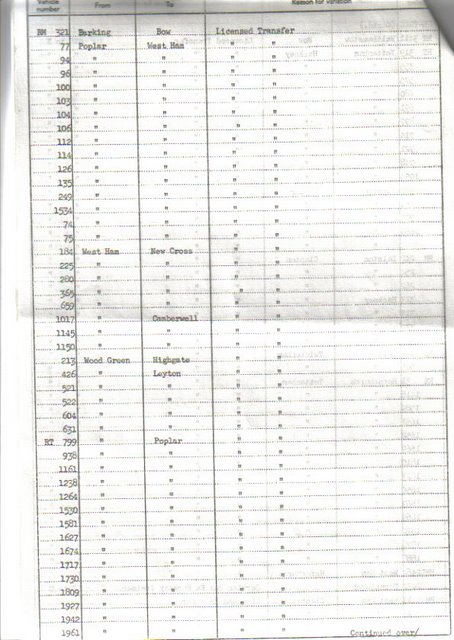 Vehicle number From To Reason for variation
RM 321 Barking Bow Licensed Transfer
77 Poplar West Ham " "
94 " " " "
96 " " " "
100 " " " "
103 " " " "
104 " " " "
106 " " " "
112 " " " "
114 " " " "
126 " " " "
135 " " " "
249 " " " "
1534 " " " "
74 " " " "
75 " " " "
184 West Ham New Cross " "
225 " " " "
280 " " " "
365 " " " "
659 " " " "
1017 " Camberwell " "
1145 " " " "
1150 " " " "
213 Wood Green Highgate " "
426 " Leyton " "
521 " " " "
522 " " " "
604 " " " "
631 " " " "
RT 799 " Poplar " "
938 " " " "
1161 " " " "
1238 " " " "
1264 " " " "
1530 " " " "
1581 " " " "
1627 " " " "
1674 " " " "
1717 " " " "
1730 " " " "
1809 " " " "
1927 " " " "
1942 " " " "
1961 " " Continued over/